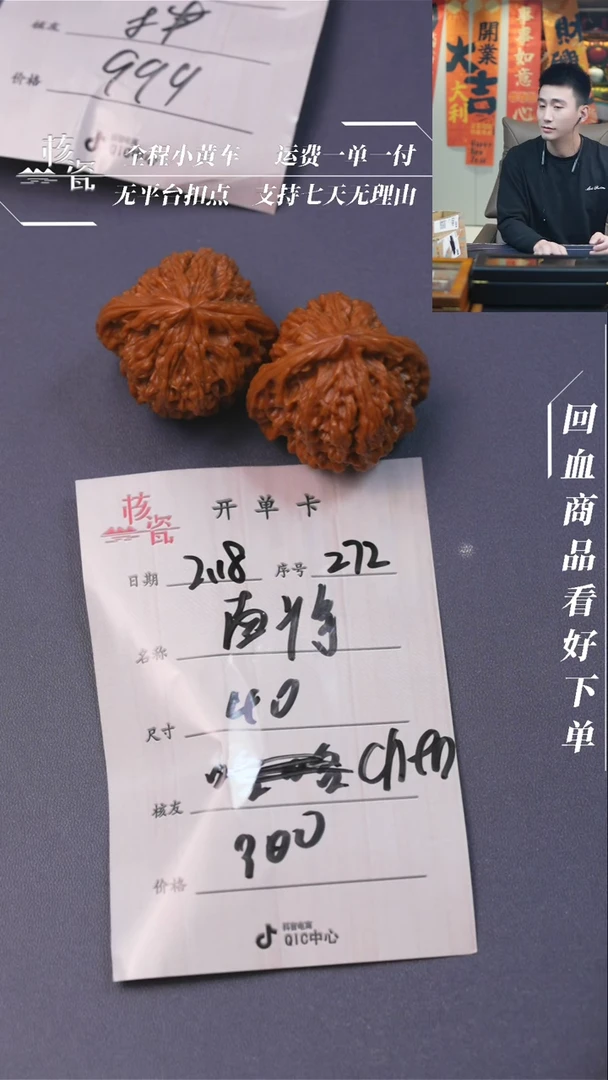 核友
价格 999
核瓷
全程小黄车 运费一单一付
无平台扣点 支持七天无理由
開業大吉
大利
事事如意
心
财
回血商品看好下单
核瓷
开单卡
日期 2.18 序号 272
名称
尺寸 40
核友 Chen
价格 300
抖音电商
QIC中心